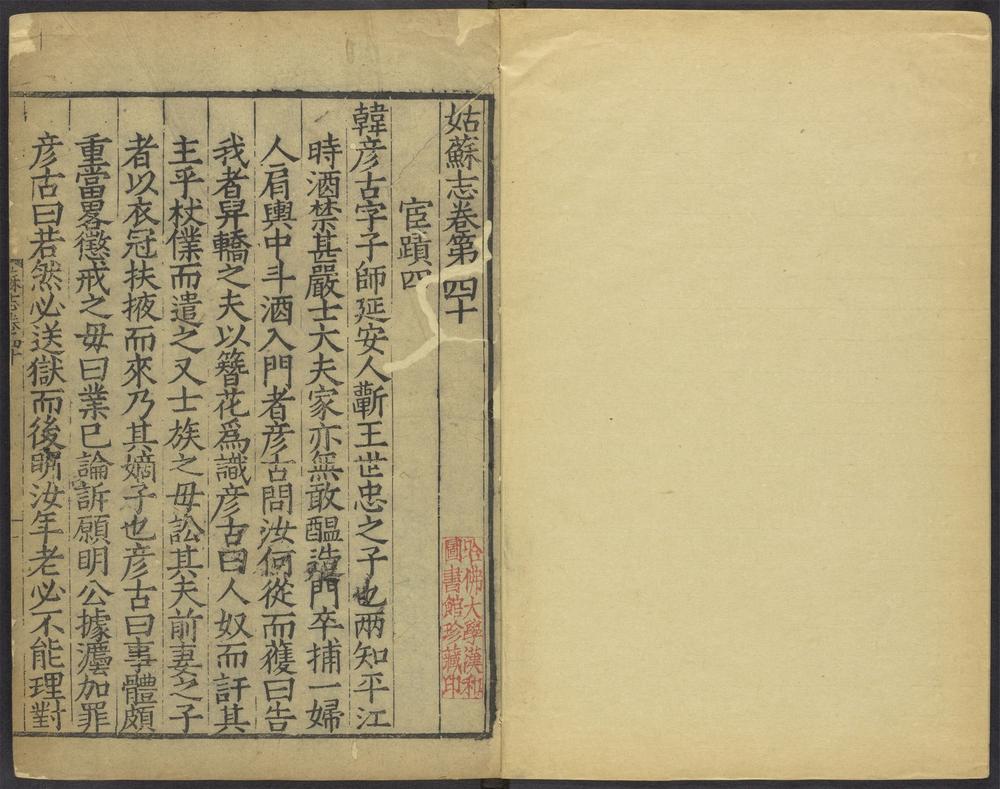 姑蘇志卷第四十
宦蹟四
韓彦古字子師延安人蘄王世忠之子也兩知平江
時酒禁甚嚴士大夫家亦無敢醖造門卒捕一婦
人肩輿中斗酒入門者彦古問汝何從而獲曰告
我者舁轎之夫以簪花爲識彦古曰人奴而訐其
主乎杖僕而遣之又士族之母訟其夫前妻之子
者以衣冠扶掖而來乃其嫡子也彦古曰事體頗
重當畧懲戒之毋曰業已論訴願明公據灋加罪
彦古曰若然必送獄而後明汝年老必不能理對
哈佛大學漢和
圖書館珍藏印